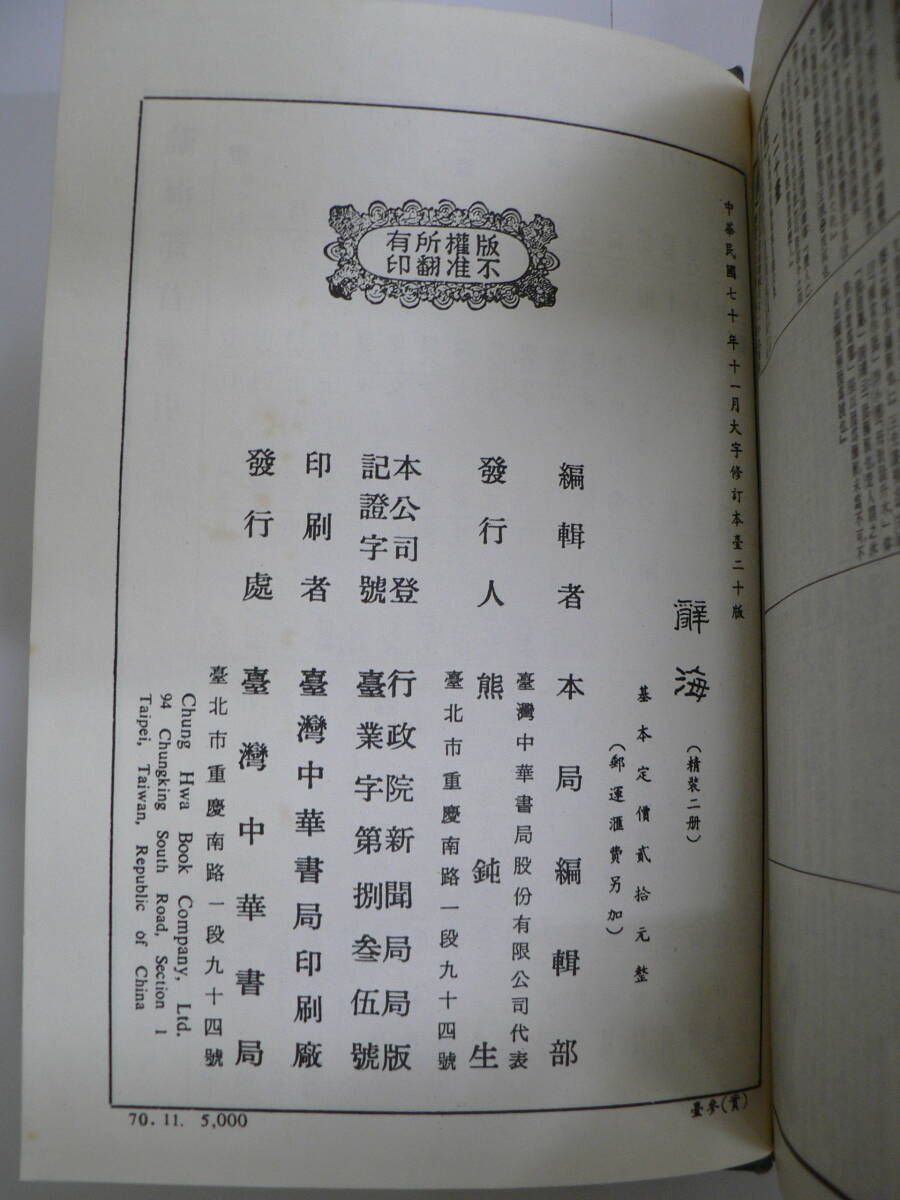 中華民國七十年十一月大字修訂本臺二十版
辭海
(精裝二册)
基本定價貳拾元整
(郵運滙費另加)
編輯者 本局編輯部
發行人 熊鈍生
臺灣中華書局股份有限公司代表
臺北市重慶南路一段九十四號
本公司登記證字號
行政院新聞局局版
臺業字第捌叁伍號
印刷者 臺灣中華書局印刷廠
發行處 臺灣中華書局
臺北市重慶南路一段九十四號
Chung Hwa Book Company, Ltd.
94 Chungking South Road, Section 1
Taipei, Taiwan, Republic of China
版權所有
不准翻印
70. 11. 5,000
臺參(實)